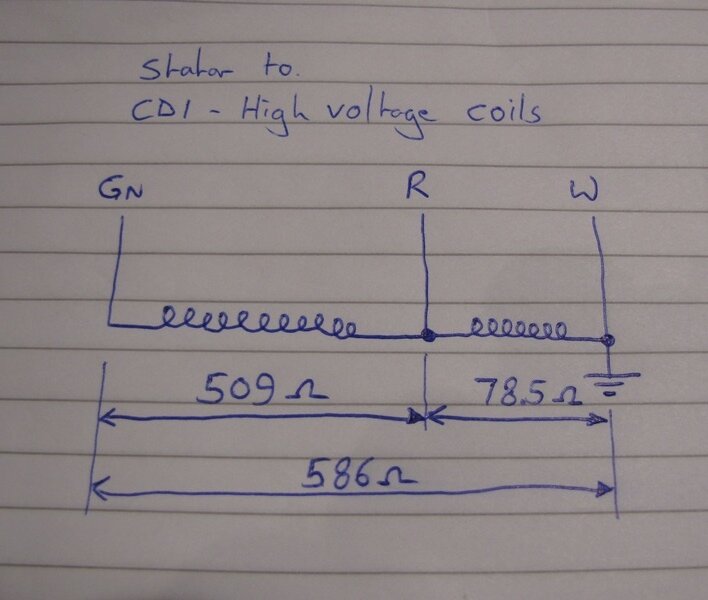 Stator to.
CDI - High voltage coils
GN R W
509Ω 78.5Ω
586Ω